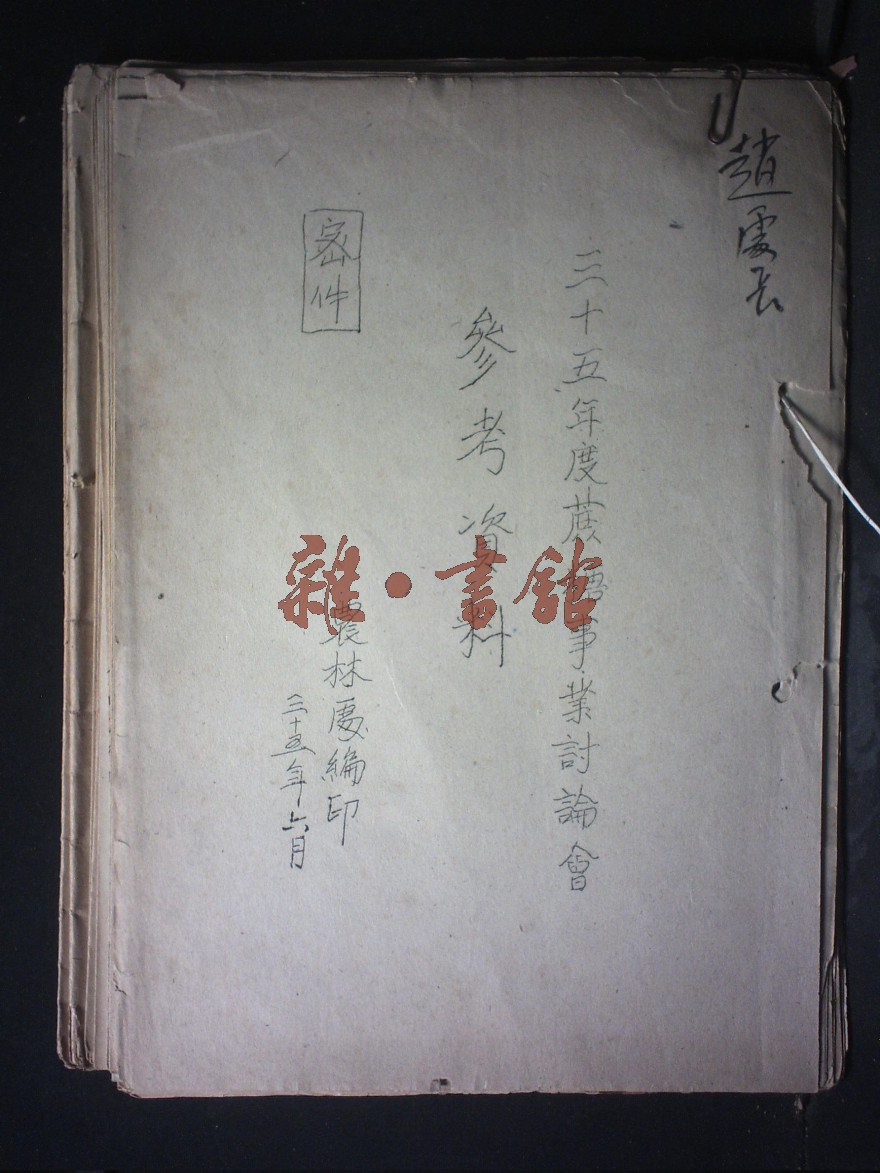 趙處長
三十五年度蔗糖事業討論會
參考資料
密件
農林處編印
三十五年六月
雜·書館